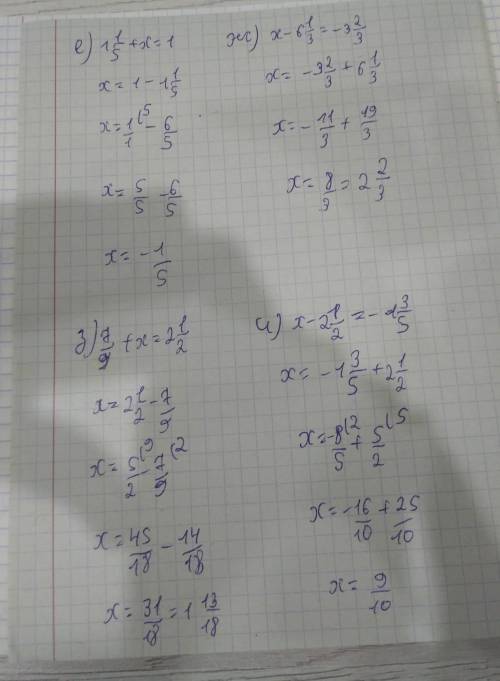 е) 1 1/5 + x = 1
x = 1 - 1 1/5
x = 1/1 (5 - 6/5
x = 5/5 - 6/5
x = -1/5
ж) x - 6 1/3 = -3 2/3
x = -3 2/3 + 6 1/3
x = -11/3 + 19/3
x = 8/3 = 2 2/3
з) 7/9 + x = 2 1/2
x = 2 1/2 - 7/9
x = 5/2 (9 - 7/9 (2
x = 45/18 - 14/18
x = 31/18 = 1 13/18
и) x - 2 1/2 = -1 3/5
x = -1 3/5 + 2 1/2
x = -8/5 (2 + 5/2 (5
x = -16/10 + 25/10
x = 9/10